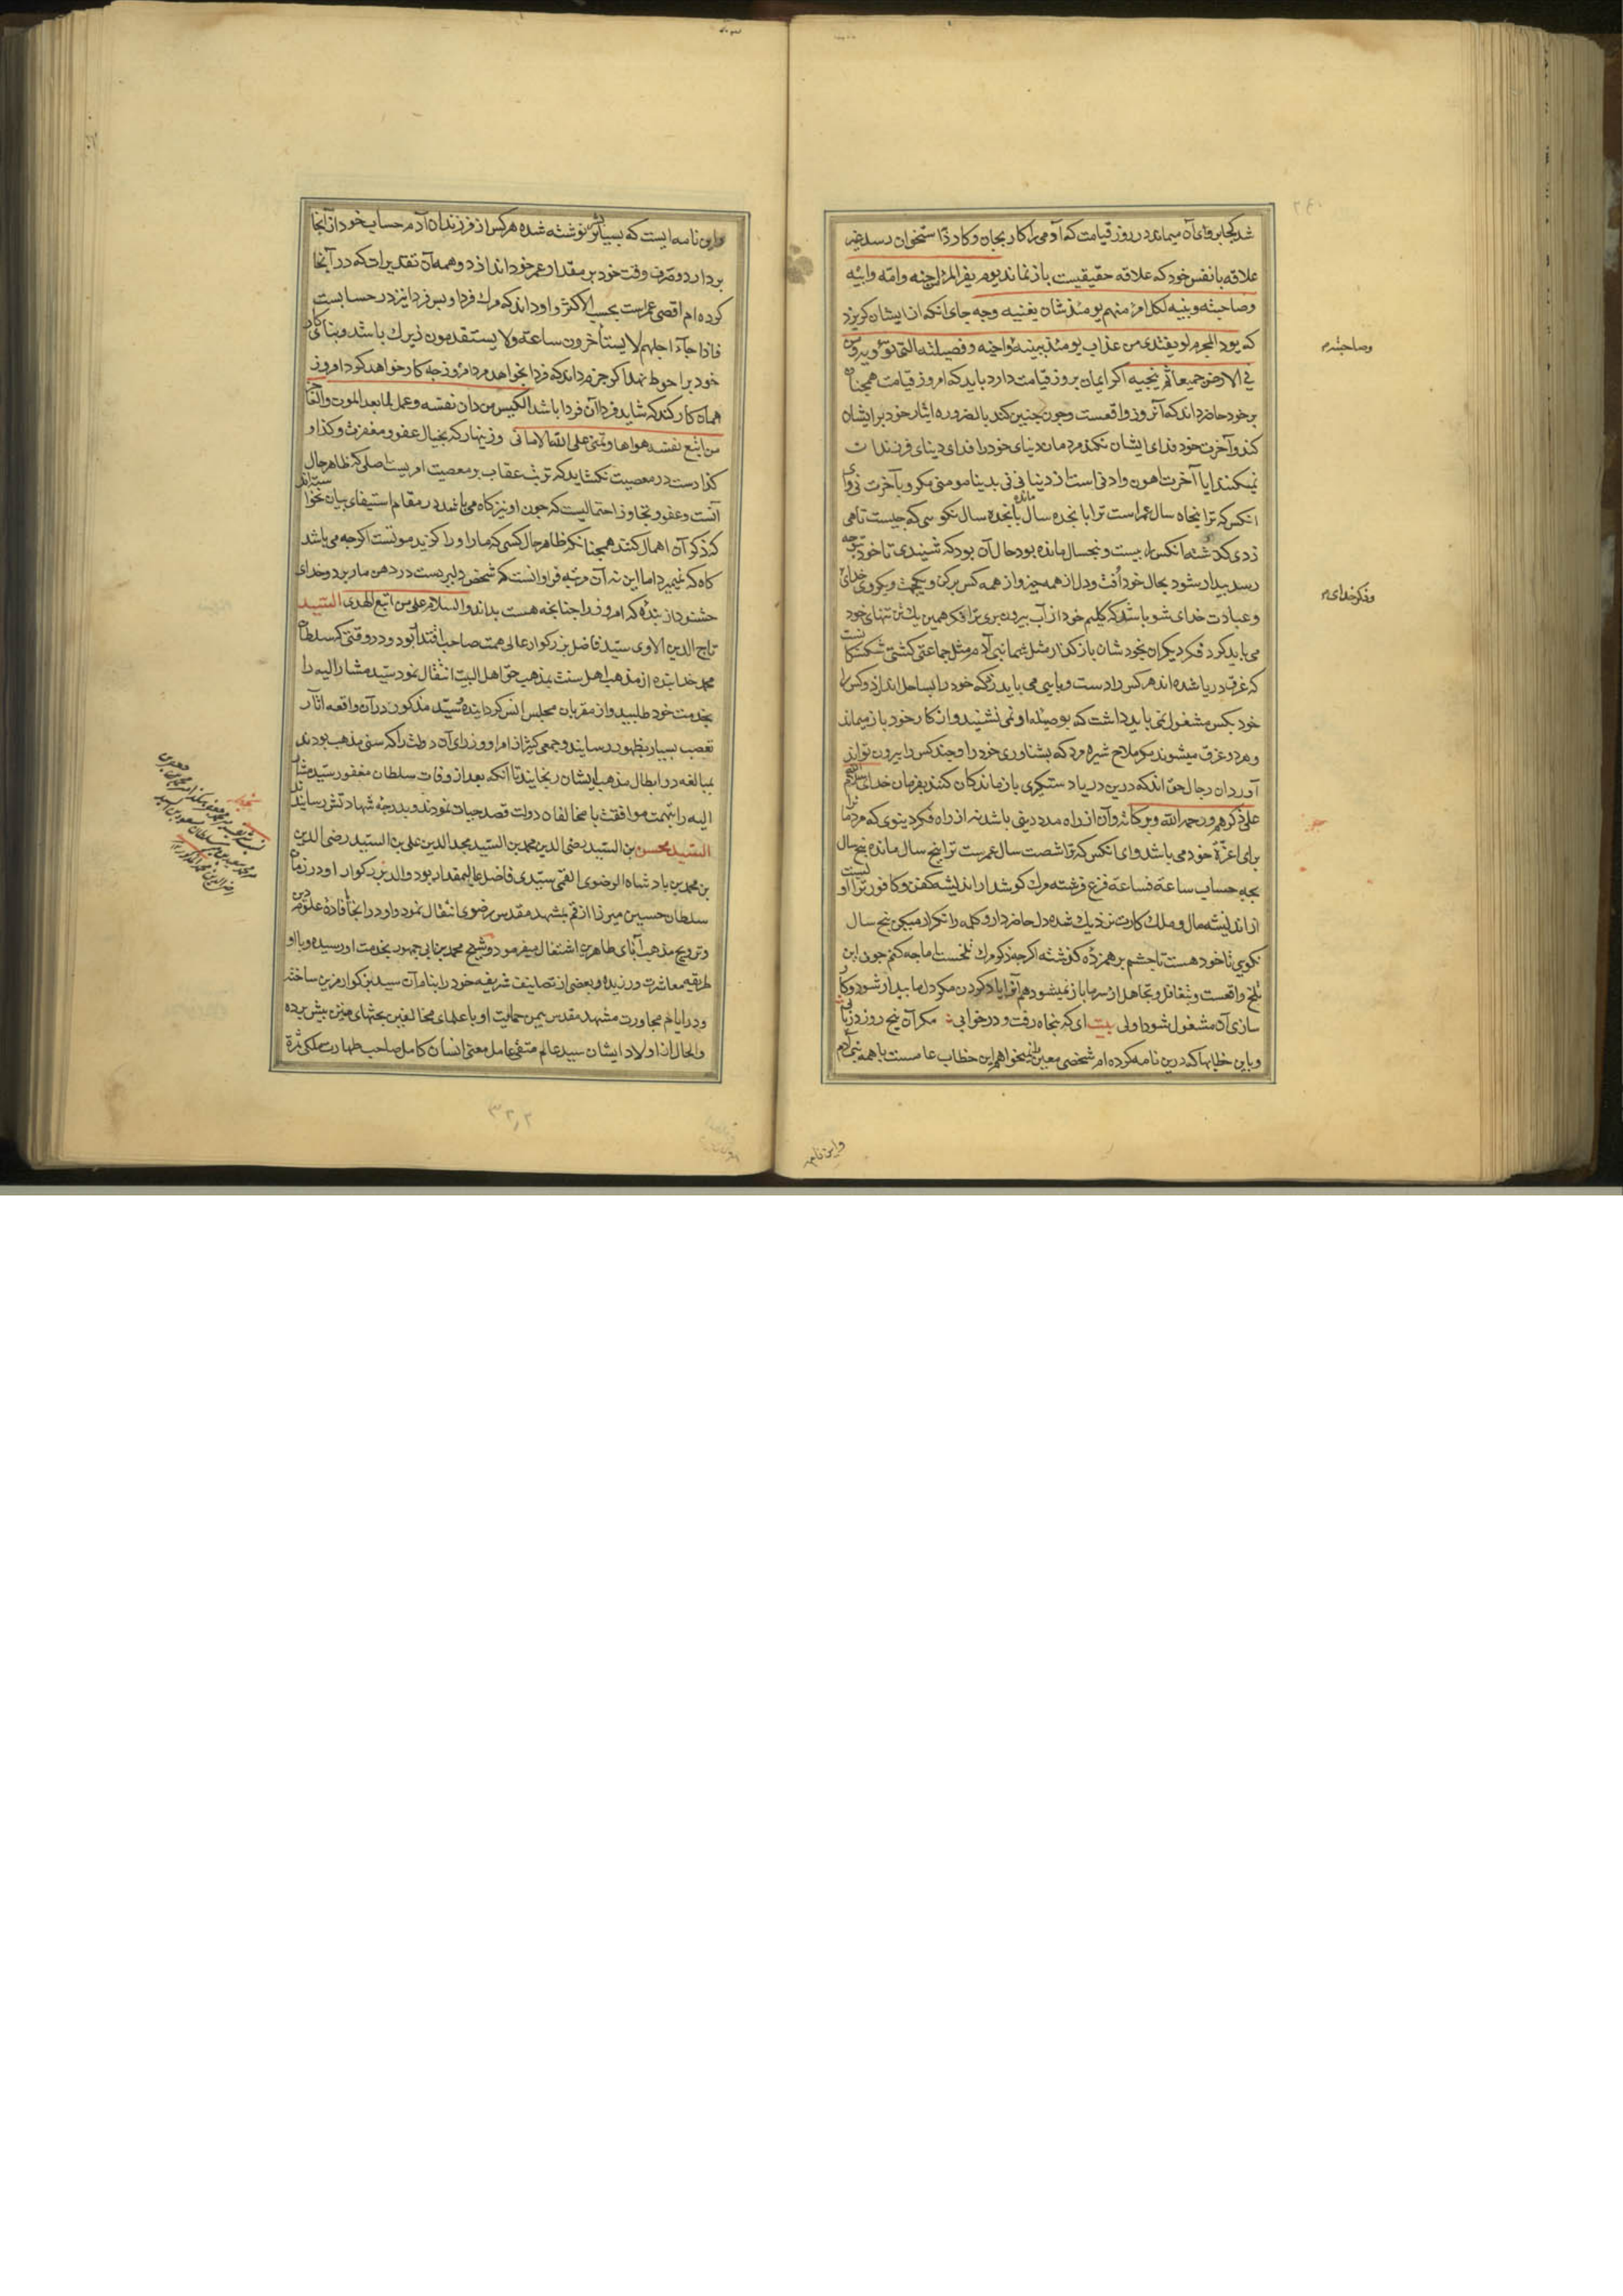 شد کجا بروای آن میماند در روز قیامت که آدمی را کار بجان و کارد باستخوان رسد غیر
علاقه با نفس خود که علاقه حقیقیست باز نماند یوم یفر المرء من اخیه و امه و ابیه
و صاحبته و بنیه لکل امرء منهم یومئذ شان یغنیه و چه جای آنکه از ایشان گریزد
که یود المجرم لو یفتدی من عذاب یومئذ ببنیه و صاحبته و اخیه و فصیلته التی تؤویه و من
فی الارض جمیعا ثم ینجیه اکر ایمان بروز قیامت دارد باید که امروز قیامت همچنان
بر خود حاضر داند که آنروز واقعست و چون چنین کند بالضروره ایثار خود بر ایشان
کند و آخرت خود فدای ایشان نکند مردمان دنیای خود را فدای دنیای فرزندان
نمیکنند ایا آخرت اهون و ادنی است از دینا فی فی بدینا مومنی مکر و بآخرت نی وای
انکس که ترا پنجاه سال عمر است ترا با پنجده سال مانده پانجده سال نکو سی که چیست تا هی
زدی کذشته انکس را بیست و پنجسال مانده بود حال آن بود که شنیدی تا خود ترا چه
رسد بیدار شو و بحال خود افت و دل از همه چیز و از همه کس برکن و یکجهت و یکروی خدای
و عبادت خدای شو باشد که کلیم خود از آب بیرون بری ترا فکر همین یک تن تنهای خود
می باید کرد فکر دیکران بخودشان باز کذار مثل شما بنی آدم مثل جماعتی کشتی شکستکانست
که غرق دریا شده اند هر کس را دست و پایی می باید زد که خود را بساحل اندازد و کس را
خود بکس مشغول نمی باید داشت که بوصیله او نمی نشیند و از کار خود باز میماند
و هر دو غرق میشوند مکر ملاح شیره مرد که بشناوری خود را و چند کس را بیرون تواند
آورد آن رجال حق اند که درین دریا دستکیری بازماندکان کنند بفرمان خدای سلام الله
علی ذکرهم و رحمة الله و برکاته و آن از راه مدد دینی باشد نه از راه فکر دینوی که مردم را
برای اعزّه خود می باشد وای انکس که ترا شصت سال عمرست ترا پنج سال مانده پنج سال
بچه حساب ساعة فساعة فزع فرشته مرک کوشدار اندیشه کفن و کافور ترا اولیست
از اندیشه مال و ملک کارت نزدیک شده دل حاضر دار و کلمه را تکرار میکن پنج سال
نکویی تا خود هست تا چشم بر هم زده کذشته اکرچه ذکر مرک تلخست اما چه کنم چون این
تلخ واقعست و بتغافل و تجاهل از سر ما باز نمیشود هم آنرا یاد کردن مکر دل ما بیدار شود و کار
سازی آن مشغول شود اولی بیت ای که پنجاه رفت و در خوابی مکر آن پنج روز دریابی
و باین خطابها که درین نامه کرده ام شخصی معین را نمیخواهم این خطاب عامست با همه بنی آدم
وصاحبته م
وفکر خدای م
و این نامه
و این نامه ایست که بسیار نوشته شده هر کس از فرزندان آدم حساب خود از آنجا
بردارد و صرف وقت خود بر مقدار عمر خود اندازد و همه آن تقدیرات که در آنجا
کرده ام اقصی عمراست بحسب الاکثر و او داند که مرک فردا و پس فردا نیز در حسابست
فاذا جاء اجلهم لا یستأخرون ساعة و لا یستقدمون زیرک باشد و بنای کار
خود بر احوط نهد اکر جزم داند که فردا بخواهد مرد امروز چه کار خواهد کرد امروز
همان کار کند که شاید فردا آن فردا باشد الکیس من دان نفسه و عمل لما بعد الموت و العاجز
من اتبع نفسه هواها و تمنی علی الله الامانی و زینهار که بخیال عفو و مغفرت و کذا و
کذا دست در معصیت نکشاید که ترتب عقاب بر معصیت امریست اصلی که ظاهر حال
آنست و عفو و تجاوز احتمالیست که چون او نیز کاه می باشد در مقام استیفای بیان نتوانسته اند
که ذکر آن اهمال کنند همچنانکه ظاهر حال کسی که مار او را کزید موتست اکرچه می باشد
کاه که نمیرد اما این نه آن مرتبه فراوانست که شخص دلیر دست در دهن مار برد و خدای
خشنود از بنده که امروز را چنانچه هست بداند و السلام علی من اتبع الهدی السید
تاج الدین الاوی سید فاضل بزرکوار عالی همت صاحب اقتدار بود و در وقتی که سلطان
محمد خدابنده از مذهب اهل سنت بمذهب حق اهل البیت انتقال نمود سید مشار الیه را
بخدمت خود طلبید و از مقربان مجلس انس کردانید و سید مذکور در آن واقعه اثار
تعصب بسیار بظهور رسانید و جمعی کثیر از امرا و وزرای آن دولت را که سنی مذهب بودند
بمبالغه در ابطال مذهب ایشان رنجانید تا آنکه بعد از وفات سلطان مغفور سید مشار
الیه را بتهمت موافقت با مخالفان دولت قصد حیات نمودند و بدرجه شهادتش رسانیدند
السید محسن بن السید رضی الدین محمد بن السید مجد الدین علی بن السید رضی الدین
بن محمد بن پادشاه الرضوی القمی سیدی فاضل عالیمقدار بود والد بزرکوار او در زمان
سلطان حسین میرزا از قم بمشهد مقدس رضوی انتقال نمود و او در آنجا بافاده علوم دین
و ترویج مذهب آبای طاهرین اشتغال میفرمود و شیخ محمد بن ابی جمهور بخدمت او رسیده و با او
طریقه معاشرت ورزیده و بعضی از تصانیف شریفه خود را بنام آن سید بزرکوار مزین ساخته
و در ایام مجاورت مشهد مقدس بیمن حمایت او با علمای مخالفین بحثهای متین پیش برده
و الحال از اولاد ایشان سید عالم متقی عامل معنی انسان کامل صاحب طهارت ملکی ثمرة
۳۲٫۲